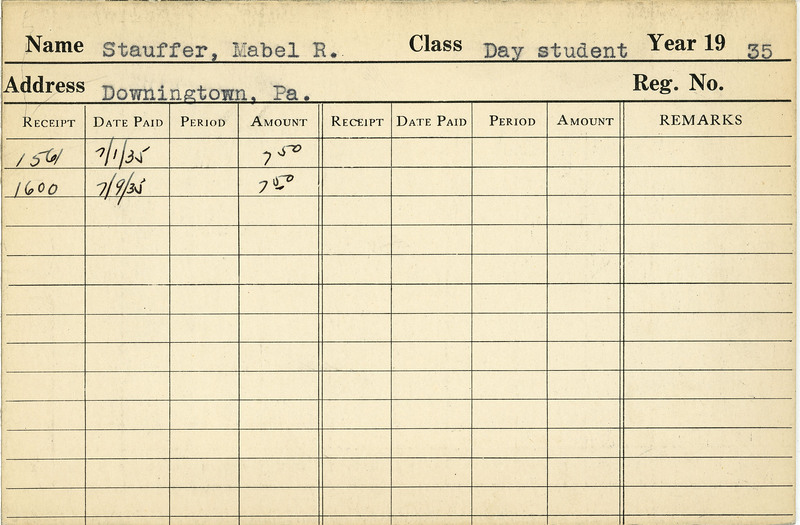 Name Stauffer, Mabel R. Class Day student Year 19 35
Address Downingtown, Pa. Reg. No.
RECEIPT DATE PAID PERIOD AMOUNT RECEIPT DATE PAID PERIOD AMOUNT REMARKS
1561 7/1/35 7 50
1600 7/9/35 7 50